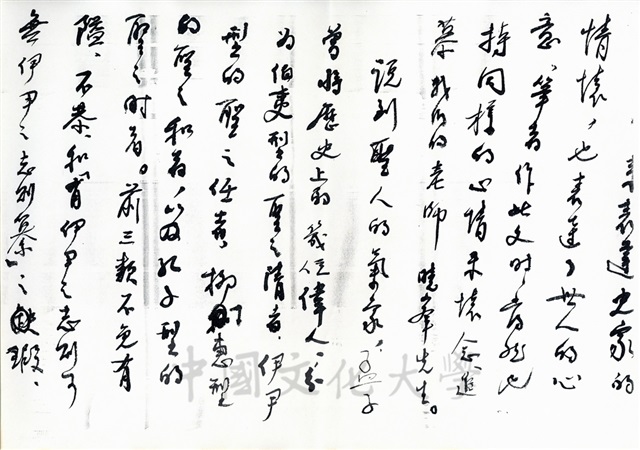 表達史家的
情懷，也表達了世人的心
意，筆者作此文時，當然也
持同樣的心情來懷念追
慕我們的老師 曉峯先生。
說到聖人的氣象，孟子
曾將歷史上的幾位偉人，分
為伯夷型的聖之清者，伊尹
型的聖之任者，柳下惠型
的聖之和者，以及孔子型的
聖之時者。前三類不免有
隘、不恭、和「有伊尹之志則可
無伊尹之志則篡」之缺瑕、
中國文化大學